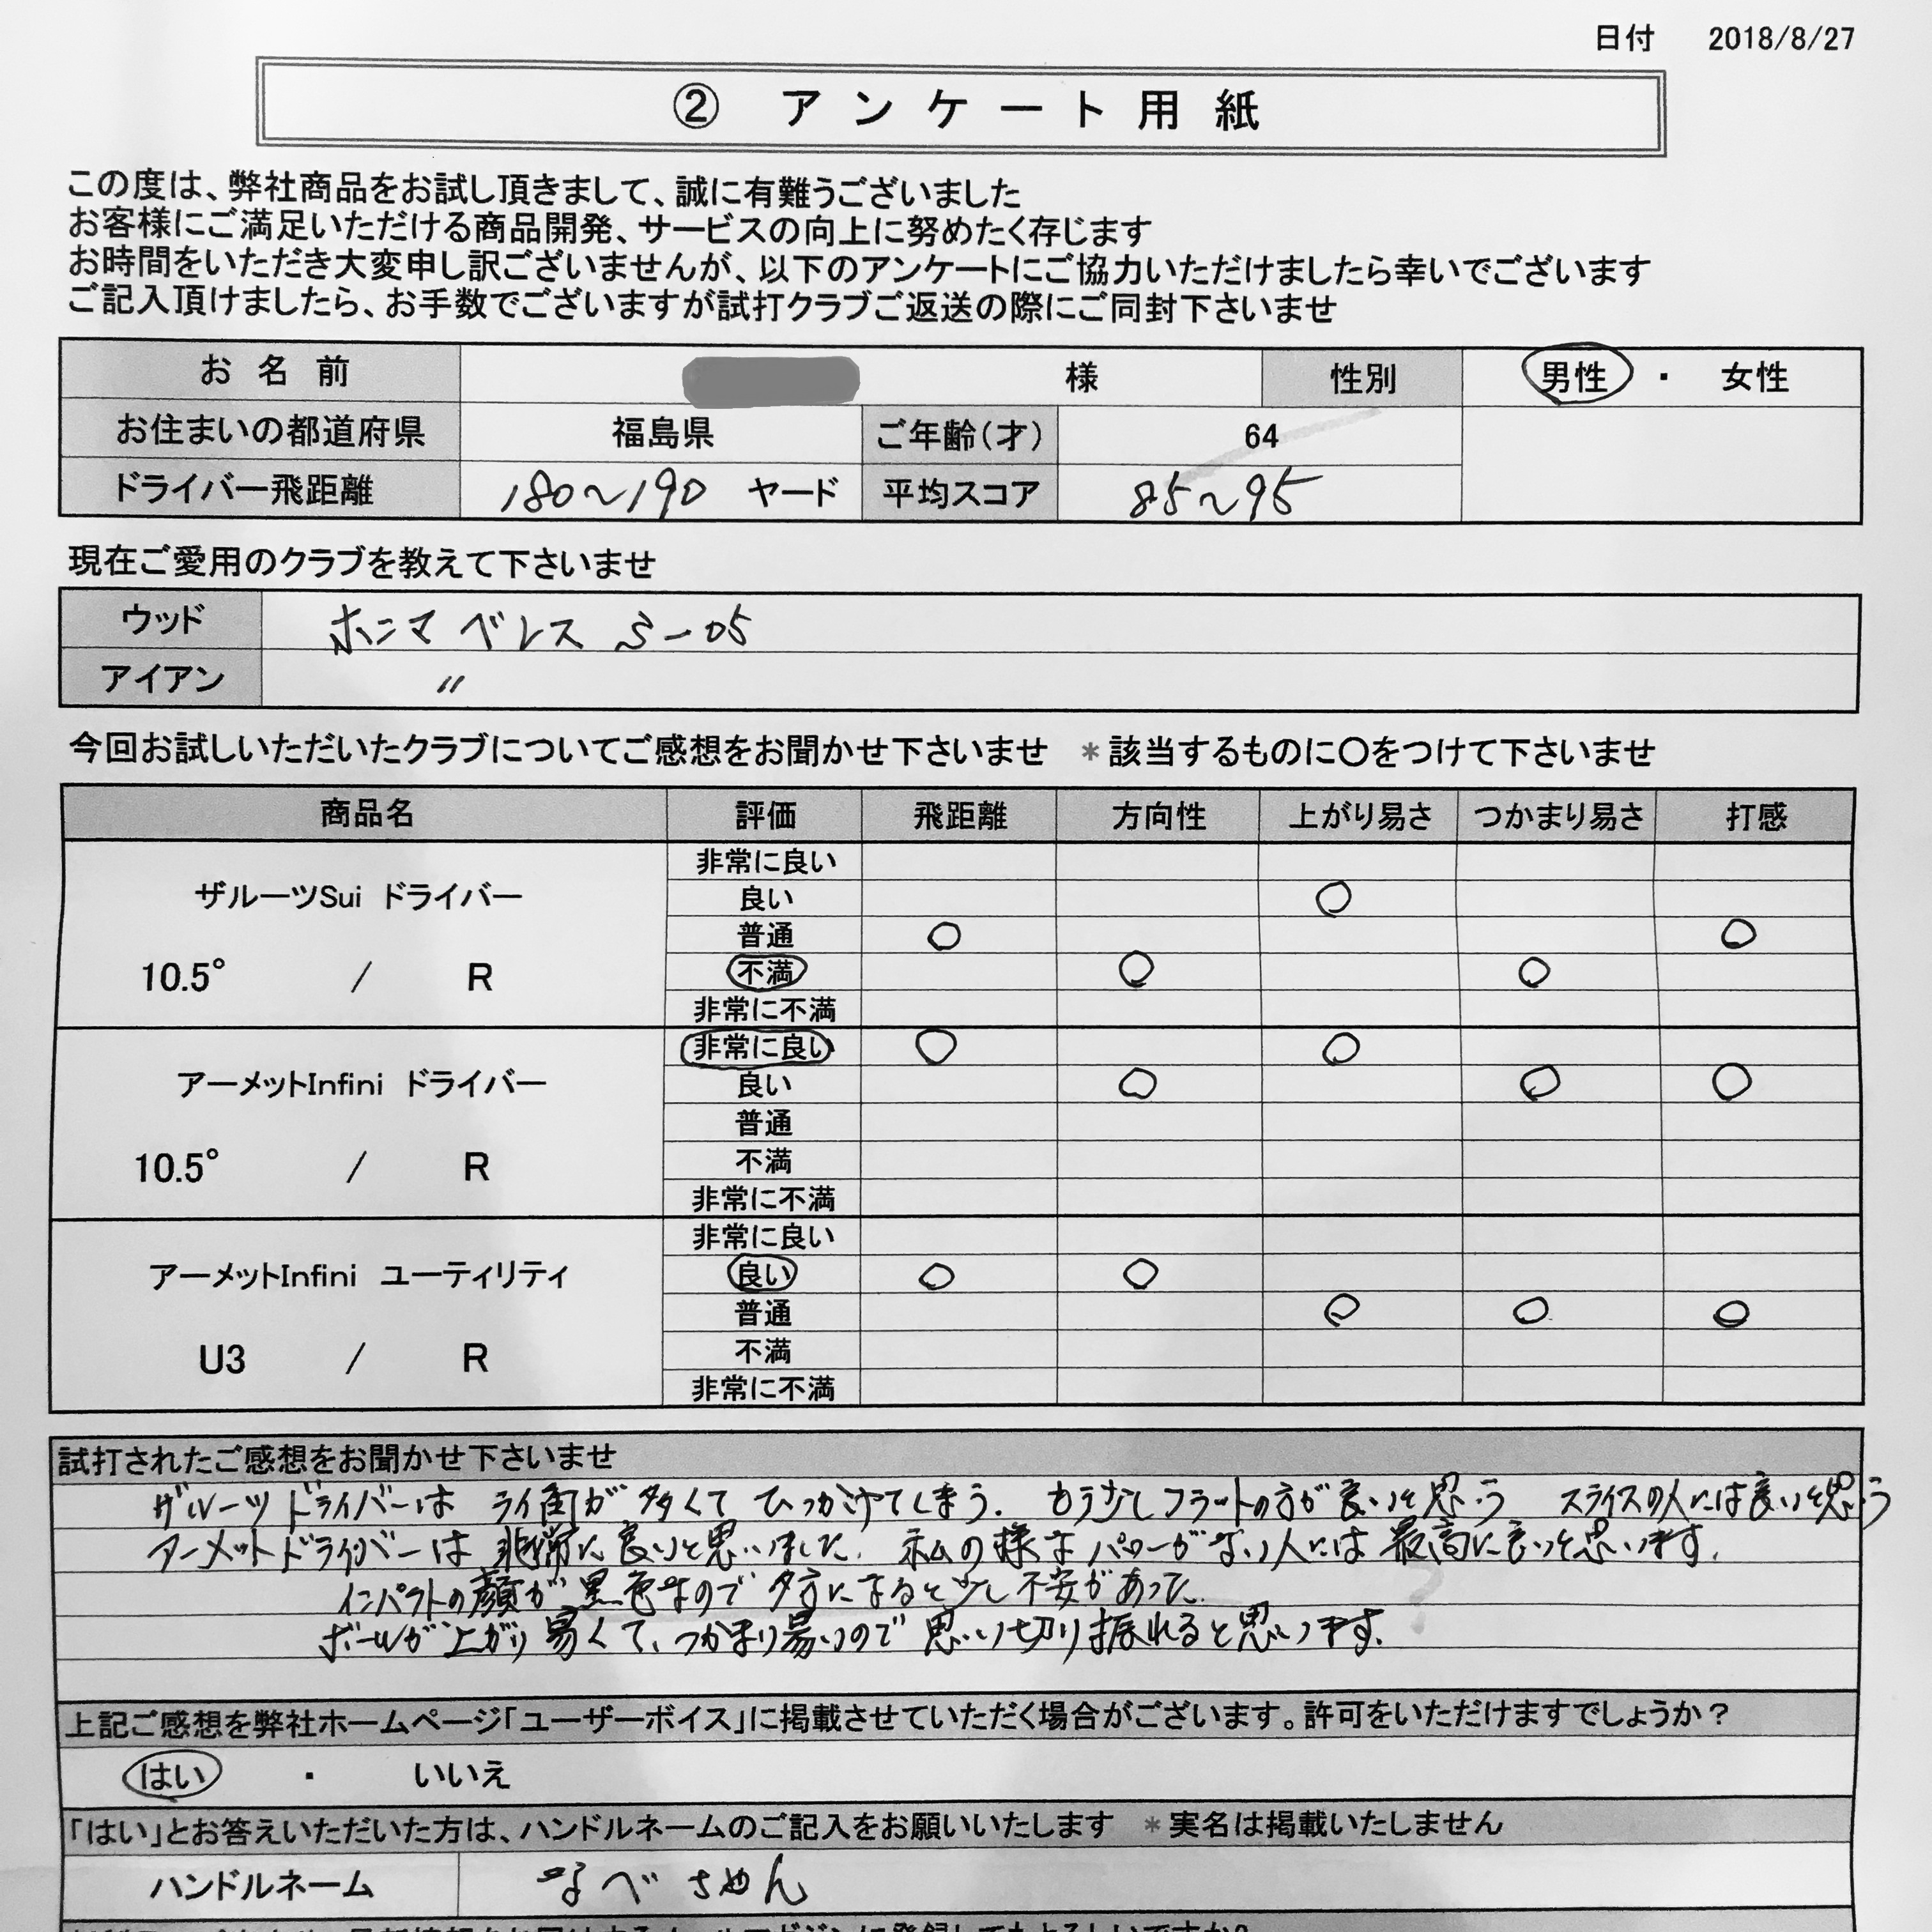 日付 2018/8/27
② アンケート用紙
この度は、弊社商品をお試し頂きまして、誠に有難うございました
お客様にご満足いただける商品開発、サービスの向上に努めたく存じます
お時間をいただき大変申し訳ございませんが、以下のアンケートにご協力いただけましたら幸いでございます
ご記入頂けましたら、お手数でございますが試打クラブご返送の際にご同封下さいませ
お名前 様 性別 男性 ・ 女性
お住まいの都道府県 福島県 ご年齢(才) 64
ドライバー飛距離 180〜190 ヤード 平均スコア 85〜95
現在ご愛用のクラブを教えて下さいませ
ウッド ホンマ ベレス S-05
アイアン 〃
今回お試しいただいたクラブについてご感想をお聞かせ下さいませ *該当するものに〇をつけて下さいませ
商品名 評価 飛距離 方向性 上がり易さ つかまり易さ 打感
ザルーツSui ドライバー
10.5° / R
非常に良い
良い ○
普通 ○ ○
不満 ○ ○
非常に不満
アーメットInfini ドライバー
10.5° / R
非常に良い ○ ○
良い ○ ○ ○
普通
不満
非常に不満
アーメットInfini ユーティリティ
U3 / R
非常に良い
良い ○ ○
普通 ○ ○ ○
不満
非常に不満
試打されたご感想をお聞かせ下さいませ
ザルーツドライバーは ライ角が多くてひっかけてしまう. もう少しフラットの方が良いと思う スライスの人には良いと思う
アーメットドライバーは非常に良いと思いました. 私の様なパワーがない人には最高に良いと思います.
インパクトの顔が黒色なので夕方になると少し不安があった.
ボールが上がり易くて、つかまり易いので思い切り振れると思います.
上記ご感想を弊社ホームページ「ユーザーボイス」に掲載させていただく場合がございます。許可をいただけますでしょうか?
はい ・ いいえ
「はい」とお答えいただいた方は、ハンドルネームのご記入をお願いいたします *実名は掲載いたしません
ハンドルネーム なべちゃん